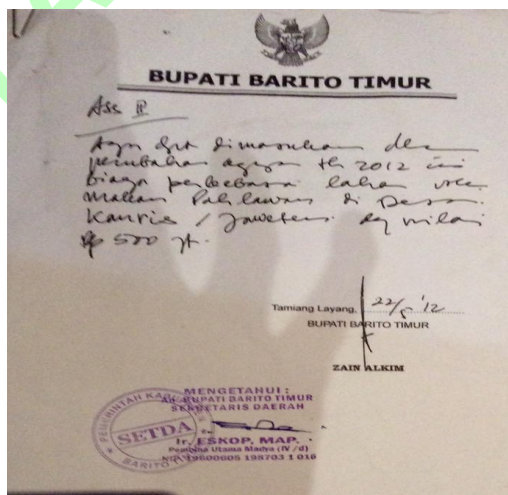 BUPATI BARITO TIMUR
Ass II
Agar dpt dimasukan dlm
perubahan th 2012 ini
biaya lahan
makam Pahlawan di Desa
/ Jaweten dg nilai
Rp 500 jt.
Tamiang Layang, 22/5 '12
BUPATI BARITO TIMUR
ZAIN ALKIM
MENGETAHUI :
An. BUPATI BARITO TIMUR
SEKRETARIS DAERAH
SETDA
Ir. ESKOP, MAP.
Pembina Utama Madya (IV/d)
NIP. 19600605 198703 1 016